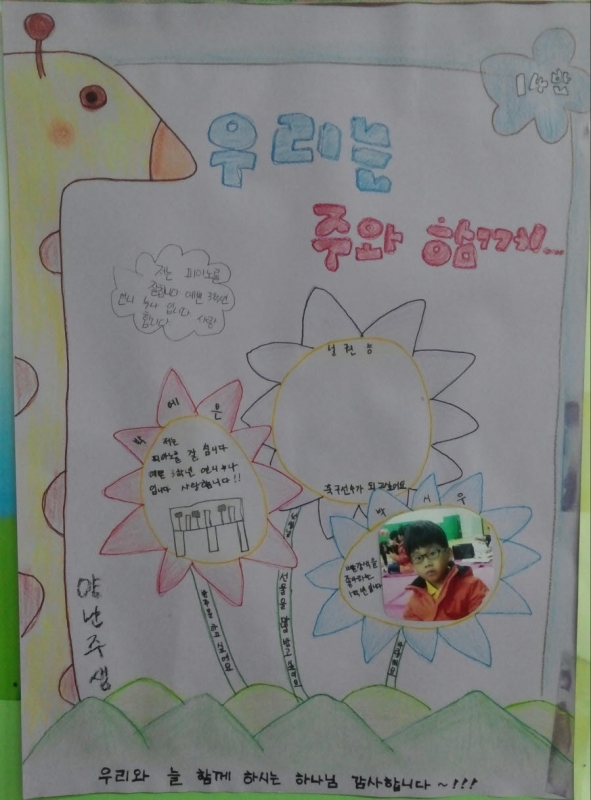 14반
우리는
주와 함께...
저는 피아노를
잘칩니다 예쁜 3학년
언니 누나 입니다 사랑
합니다
박예은
저는
피아노를 잘 칩니다
예쁜 3학년 언니 누나
입니다 사랑합니다!!
축구선수가 되고싶어요
박시우
빨간색을
좋아하는
1학년 입니다
선물을 많이 받고 싶어요
양난주샘
우리와 늘 함께 하시는 하나님 감사합니다~!!!